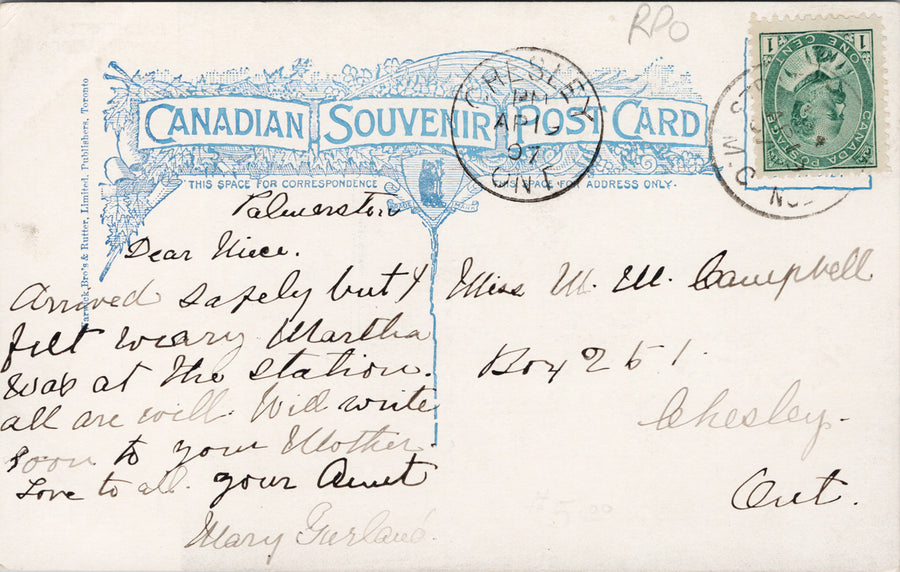 RPO
1 ONE CENT 1
CANADA POSTAGE
CANADIAN SOUVENIR POST CARD
CHESLEY
PM
AP 19
07
ONT
THIS SPACE FOR CORRESPONDENCE
SPACE FOR ADDRESS ONLY.
Bro's & Rutter, Limited, Publishers, Toronto
Palmerston
Dear Niece.
Arrived safely but I
felt weary Martha
was at the station.
all are well. Will write
soon to your Mother.
Love to all. your Aunt
Mary
Miss M. M. Campbell
Box 251.
Chesley.
Ont.